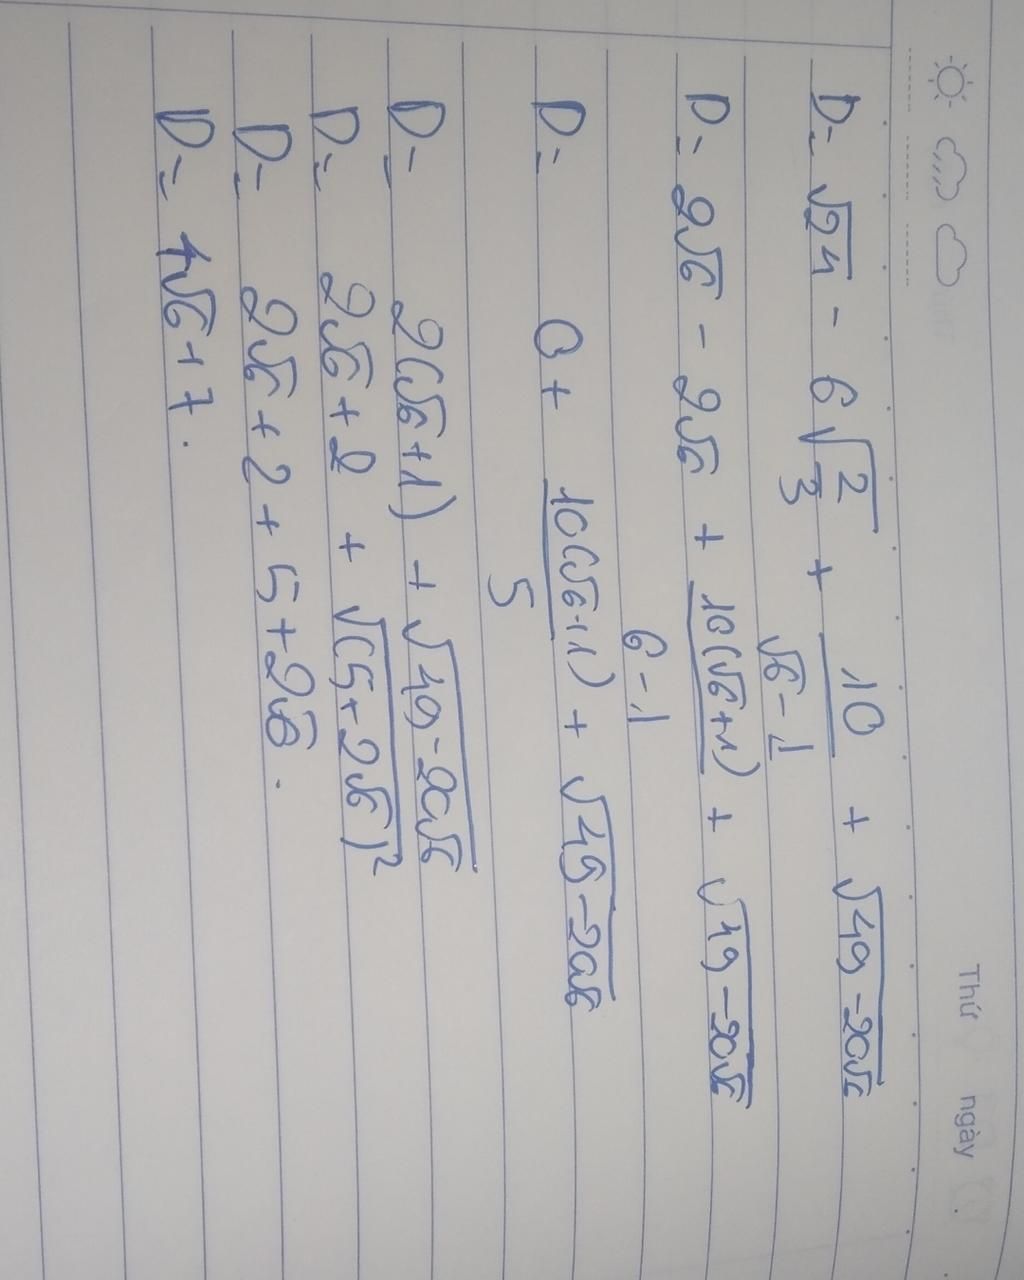 Thứ ngày
D = √24 - 6√(2/3) + 10/(√6 - 1) + √(49 - 20√6)
D = 2√6 - 2√6 + 10(√6+1)/(6 - 1) + √(49 - 20√6)
D = 0 + 10(√6+1)/5 + √(49 - 20√6)
D = 2(√6+1) + √(49 - 20√6)
D = 2√6 + 2 + √((5 + 2√6)²)
D = 2√6 + 2 + 5 + 2√6.
D = 4√6 + 7.